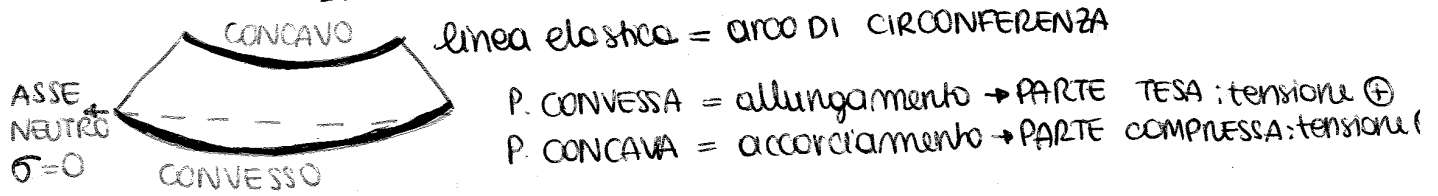 CONCAVO
linea elastica = arco DI CIRCONFERENZA
ASSE
NEUTRO
σ=0
CONVESSO
P. CONVESSA = allungamento → PARTE TESA : tensione ⊕
P. CONCAVA = accorciamento → PARTE COMPRESSA: tensione (